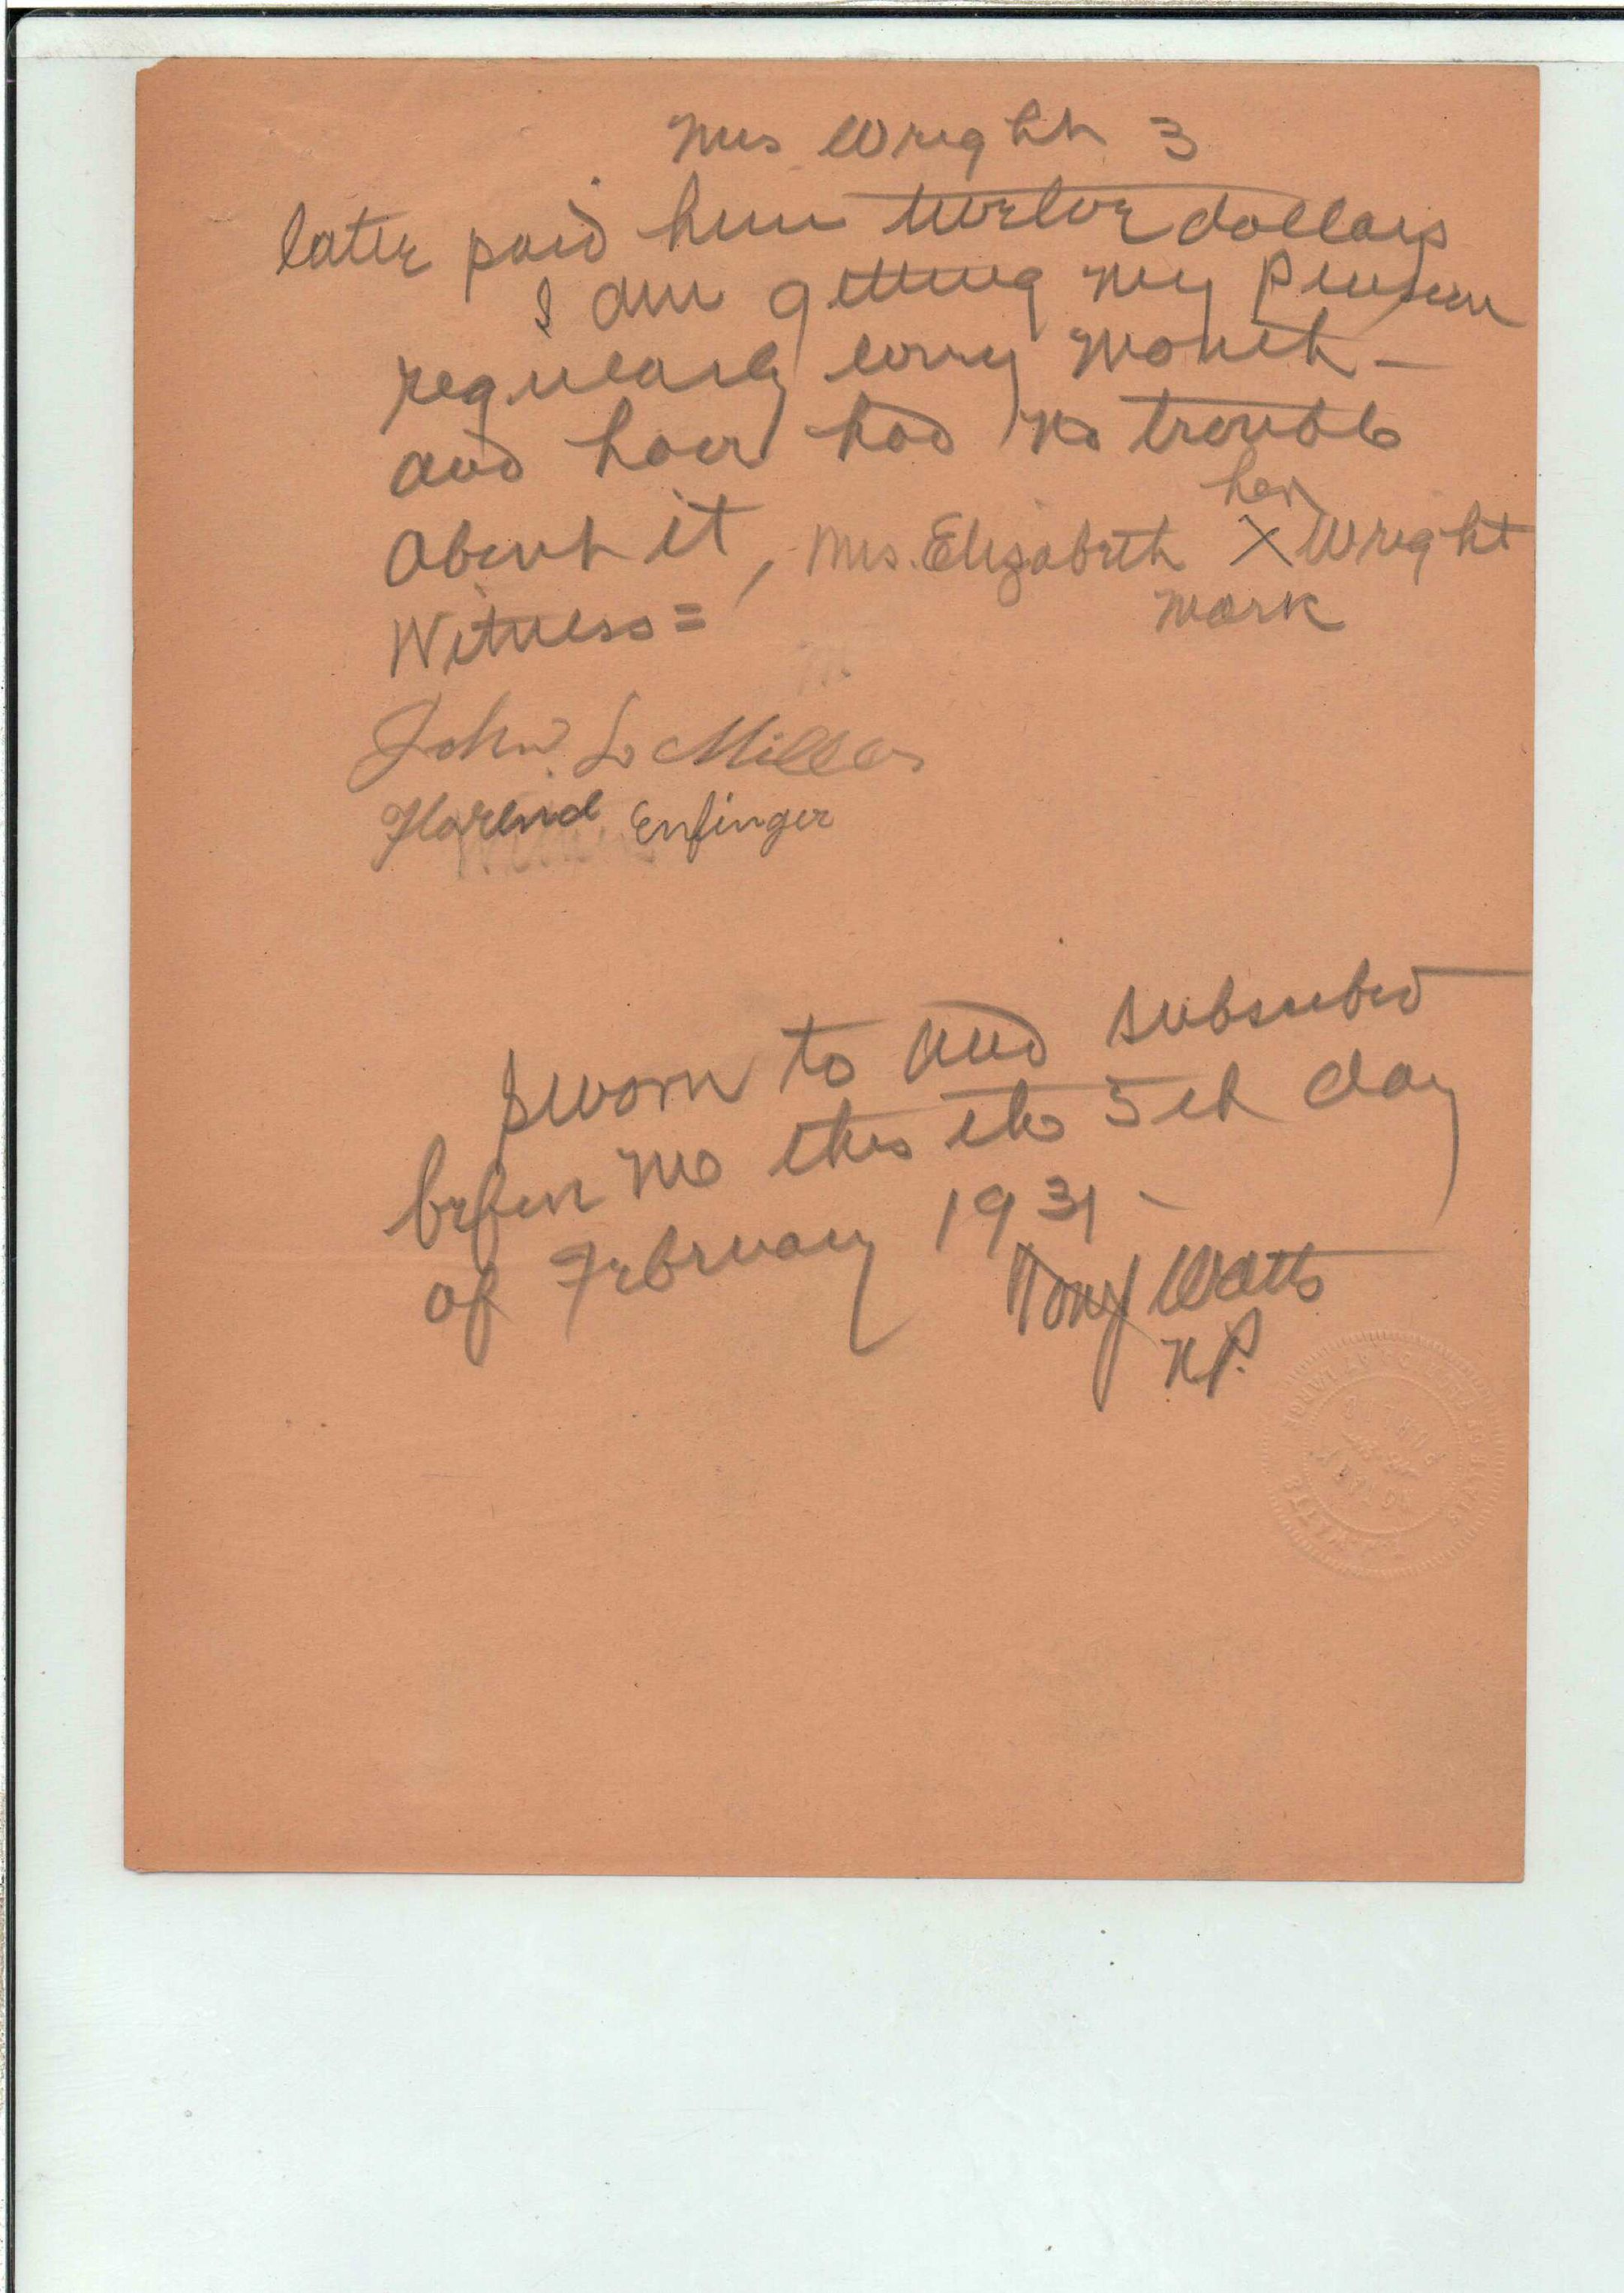 Mrs Wright 3
later paid him twelve dollars
I am getting my Pension
regularly every month -
and have had no trouble
about it, Mrs. Elizabeth her X mark Wright
Witness =
John L Miller
Enfinger
Sworn to and subscribed
before me this the 5th day
of February 1931 -
Watts
N.P.
NOTARY
PUBLIC
WATTS